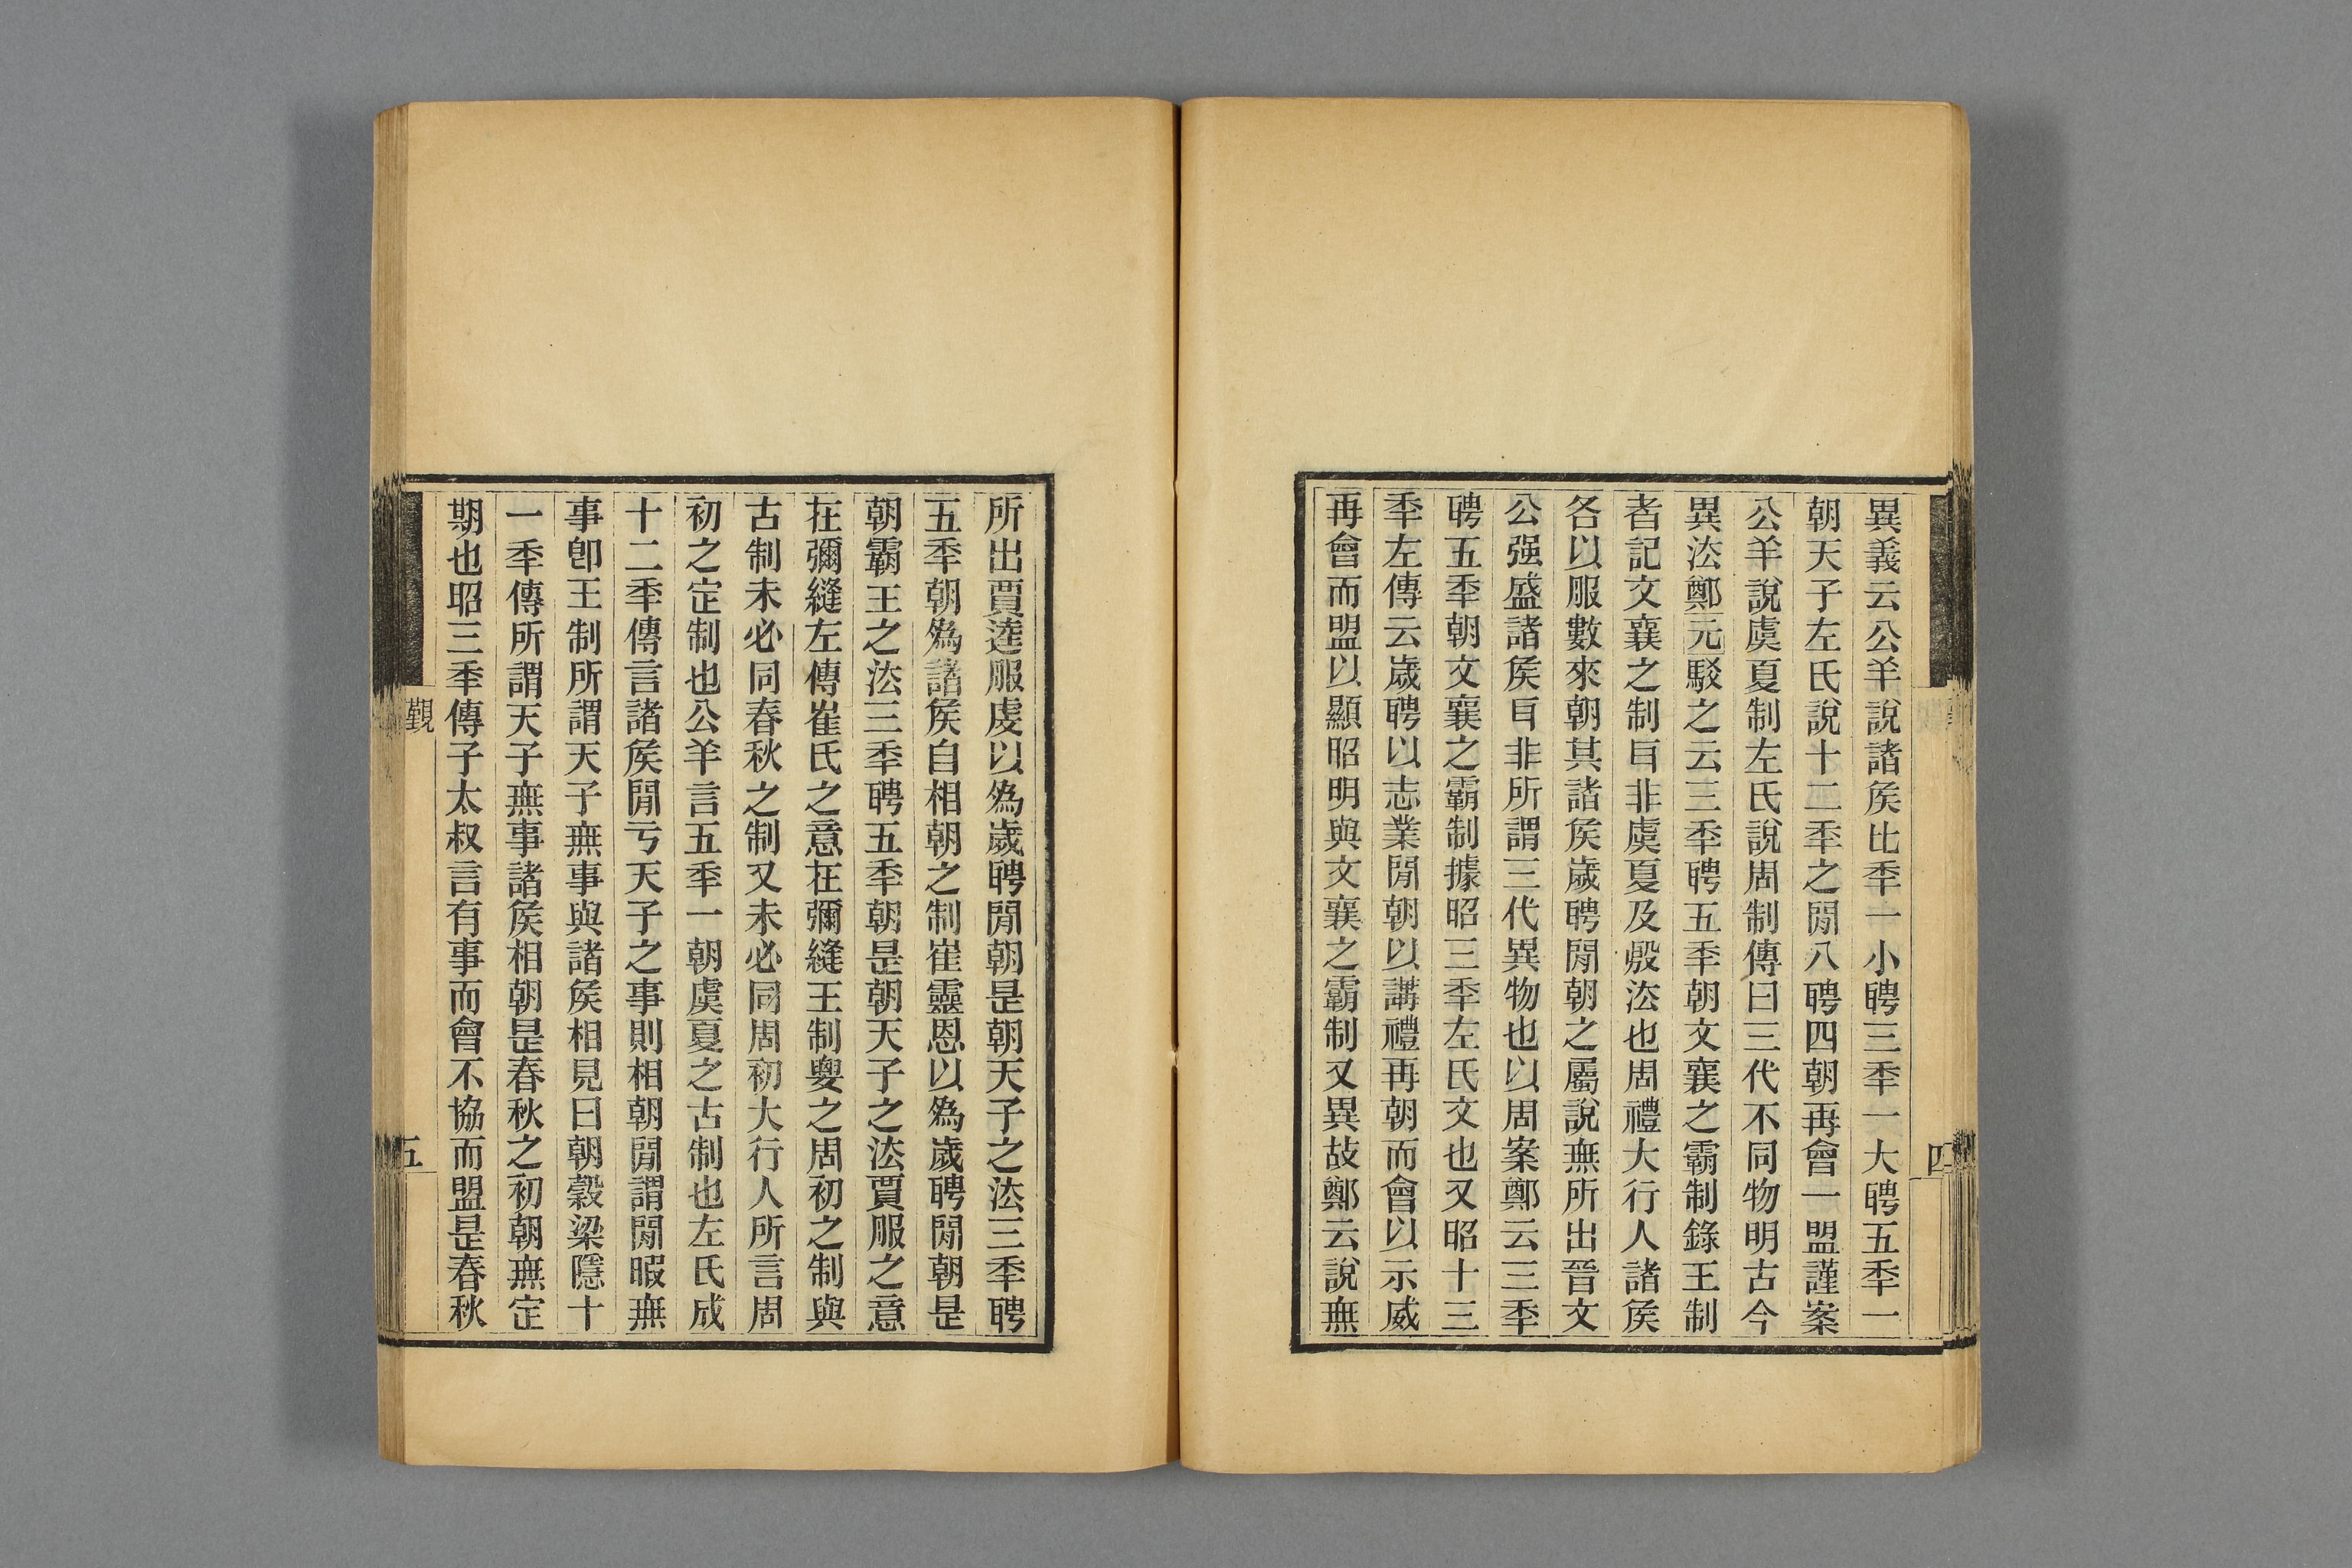 異義云公羊說諸矦比秊一小聘三秊一大聘五秊一
朝天子左氏說十二秊之閒八聘四朝再會一盟謹案
公羊說虞夏制左氏說周制傳曰三代不同物明古今
異法鄭元駁之云三秊聘五秊朝文襄之霸制錄王制
者記文襄之制㠯非虞夏及殷法也周禮大行人諸矦
各以服數來朝其諸矦歲聘閒朝之屬說無所出晉文
公强盛諸矦㠯非所謂三代異物也以周案鄭云三秊
聘五秊朝文襄之霸制據昭三秊左氏文也又昭十三
秊左傳云歲聘以志業閒朝以講禮再朝而會以示威
再會而盟以顯昭明與文襄之霸制又異故鄭云說無
四
所出賈逵服虔以爲歲聘閒朝是朝天子之法三秊聘
五秊朝爲諸矦自相朝之制崔靈恩以爲歲聘閒朝是
朝霸王之法三秊聘五秊朝是朝天子之法賈服之意
在彌縫左傳崔氏之意在彌縫王制要之周初之制與
古制未必同春秋之制又未必同周初大行人所言周
初之定制也公羊言五秊一朝虞夏之古制也左氏成
十二秊傳言諸矦閒亏天子之事則相朝閒謂閒暇無
事卽王制所謂天子無事與諸矦相見曰朝穀梁隱十
一秊傳所謂天子無事諸矦相朝是春秋之初朝無定
期也昭三秊傳子太叔言有事而會不協而盟是春秋
覲
五